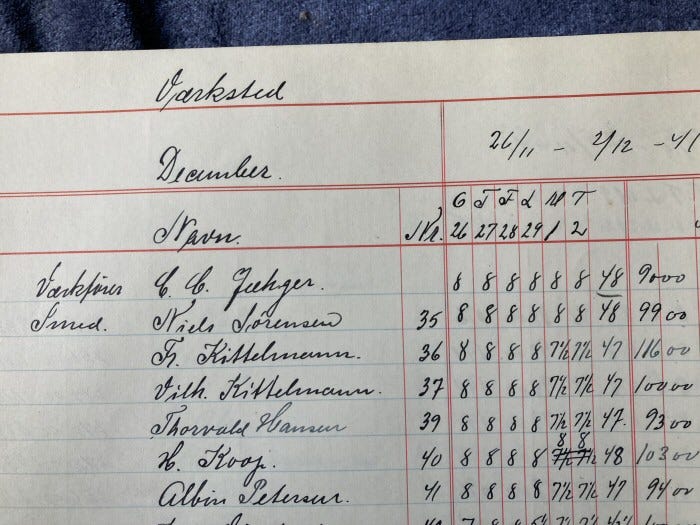 Værksted
26/11 - 2/12
December.
O T F L M T
Navn. Nr. 26 27 28 29 1 2
Værkfører C. C. Jæhger. 8 8 8 8 8 8 48 9000
Smed. Niels Sørensen 35 8 8 8 8 8 8 48 9900
Fr. Kittelmann. 36 8 8 8 8 7½ 7½ 47 11600
Vilh. Kittelmann. 37 8 8 8 8 7½ 7½ 47 10000
Thorvald Hansen 39 8 8 8 8 7½ 7½ 47. 9300
8 8
H. Koop. 40 8 8 8 8 7½ 7½ 48 10300
Albin Petersen. 41 8 8 8 8 7½ 7½ 47 9400